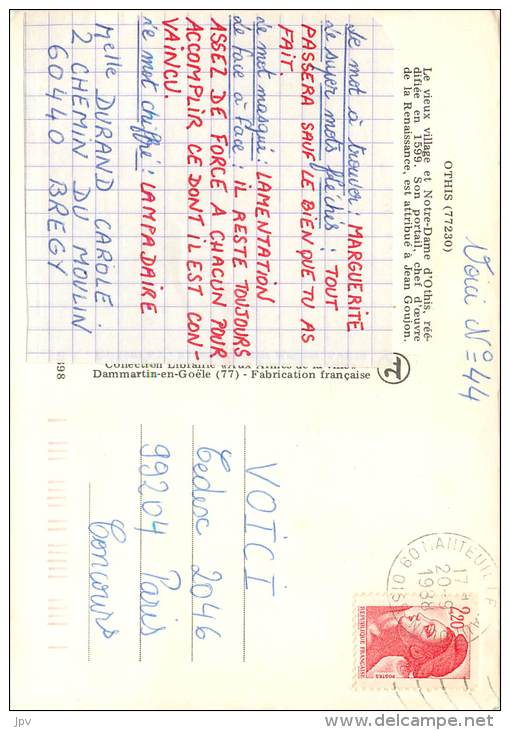 OTHIS (77230)
Le vieux village et Notre-Dame d'Othis, réé-
difiée en 1599. Son portail, chef d'œuvre
de la Renaissance, est attribué à Jean Goujon.
Voici N° 44
Le mot à trouver : MARGUERITE
Le super mots fléchis : TOUT
PASSERA SAUF LE BIEN QUE TU AS
FAIT.
Le mot masqué : LAMENTATION
de face à face : IL RESTE TOUJOURS
ASSEZ DE FORCE A CHACUN POUR
ACCOMPLIR CE DONT IL EST CON-
VAINCU.
Le mot chiffré : LAMPADAIRE
Melle DURAND CAROLE.
2 CHEMIN DU MOULIN
60440 BREGY
Collection Librairie «Aux Armes de la Ville»
Dammartin-en-Goële (77) - Fabrication française
398
60 NANTEUIL LE
17 H
20-9
1988
OISE
2,20
RÉPUBLIQUE FRANÇAISE
POSTES
VOICI
Cedex 2046
99204 Paris
Concours
JPV
www.delcampe.net